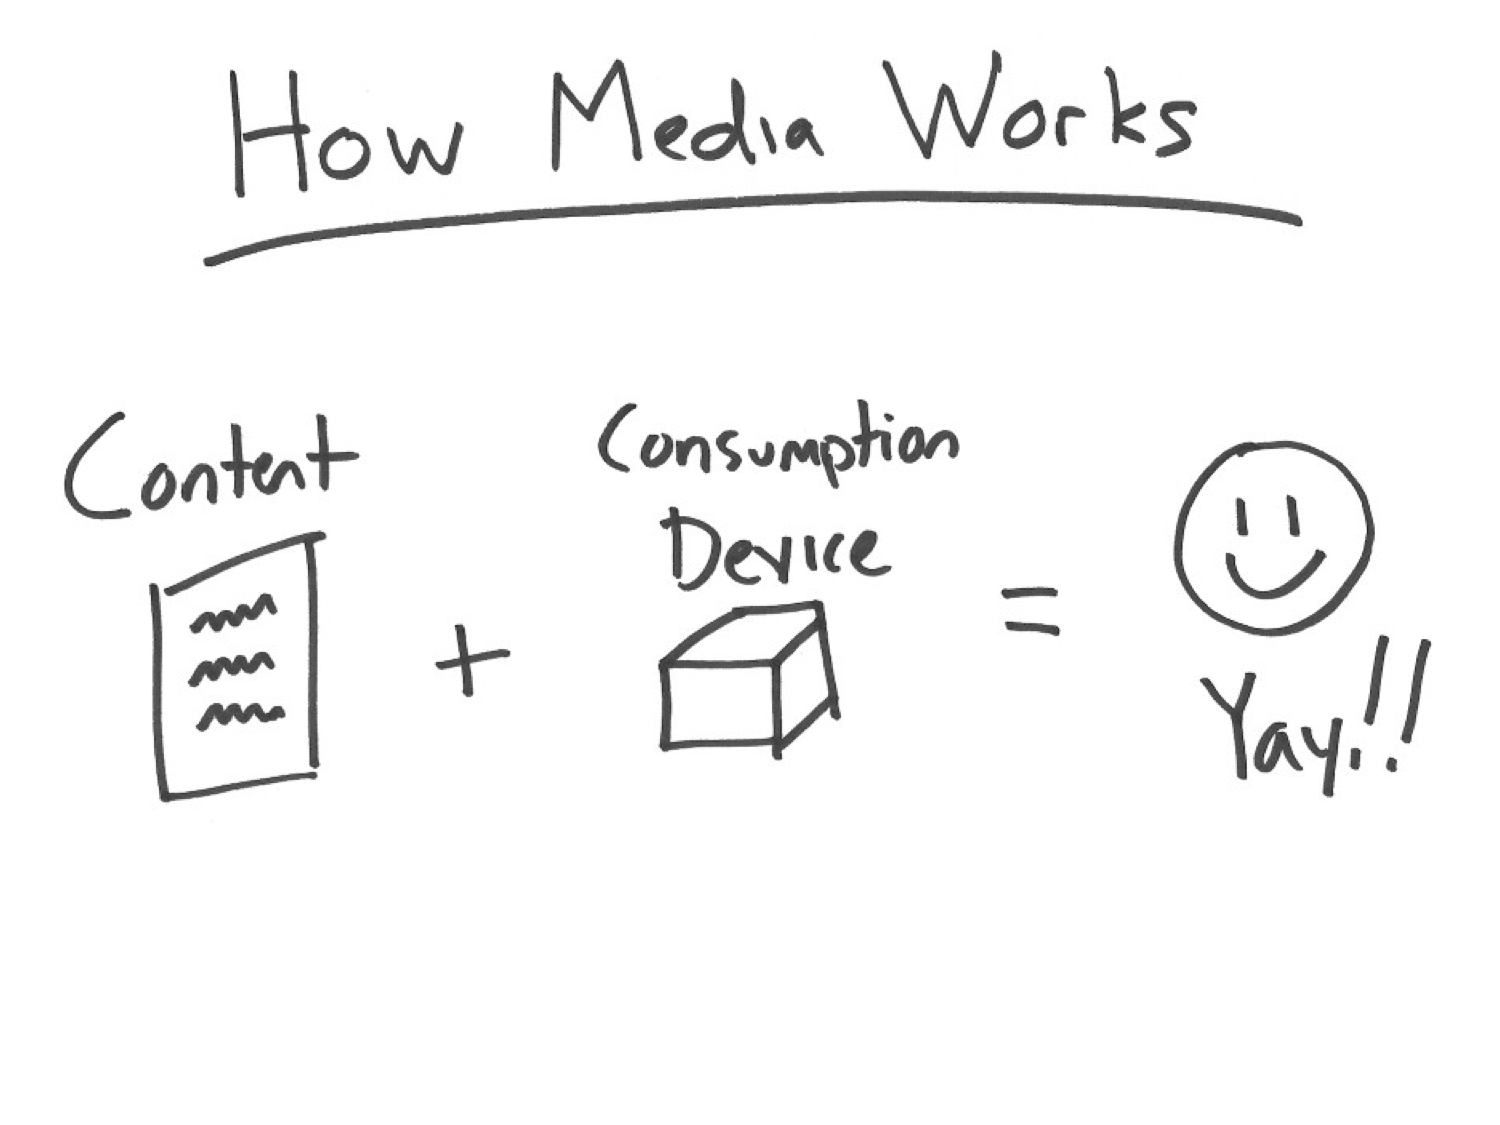 How Media Works
Content
+
Consumption
Device
=
Yay!!